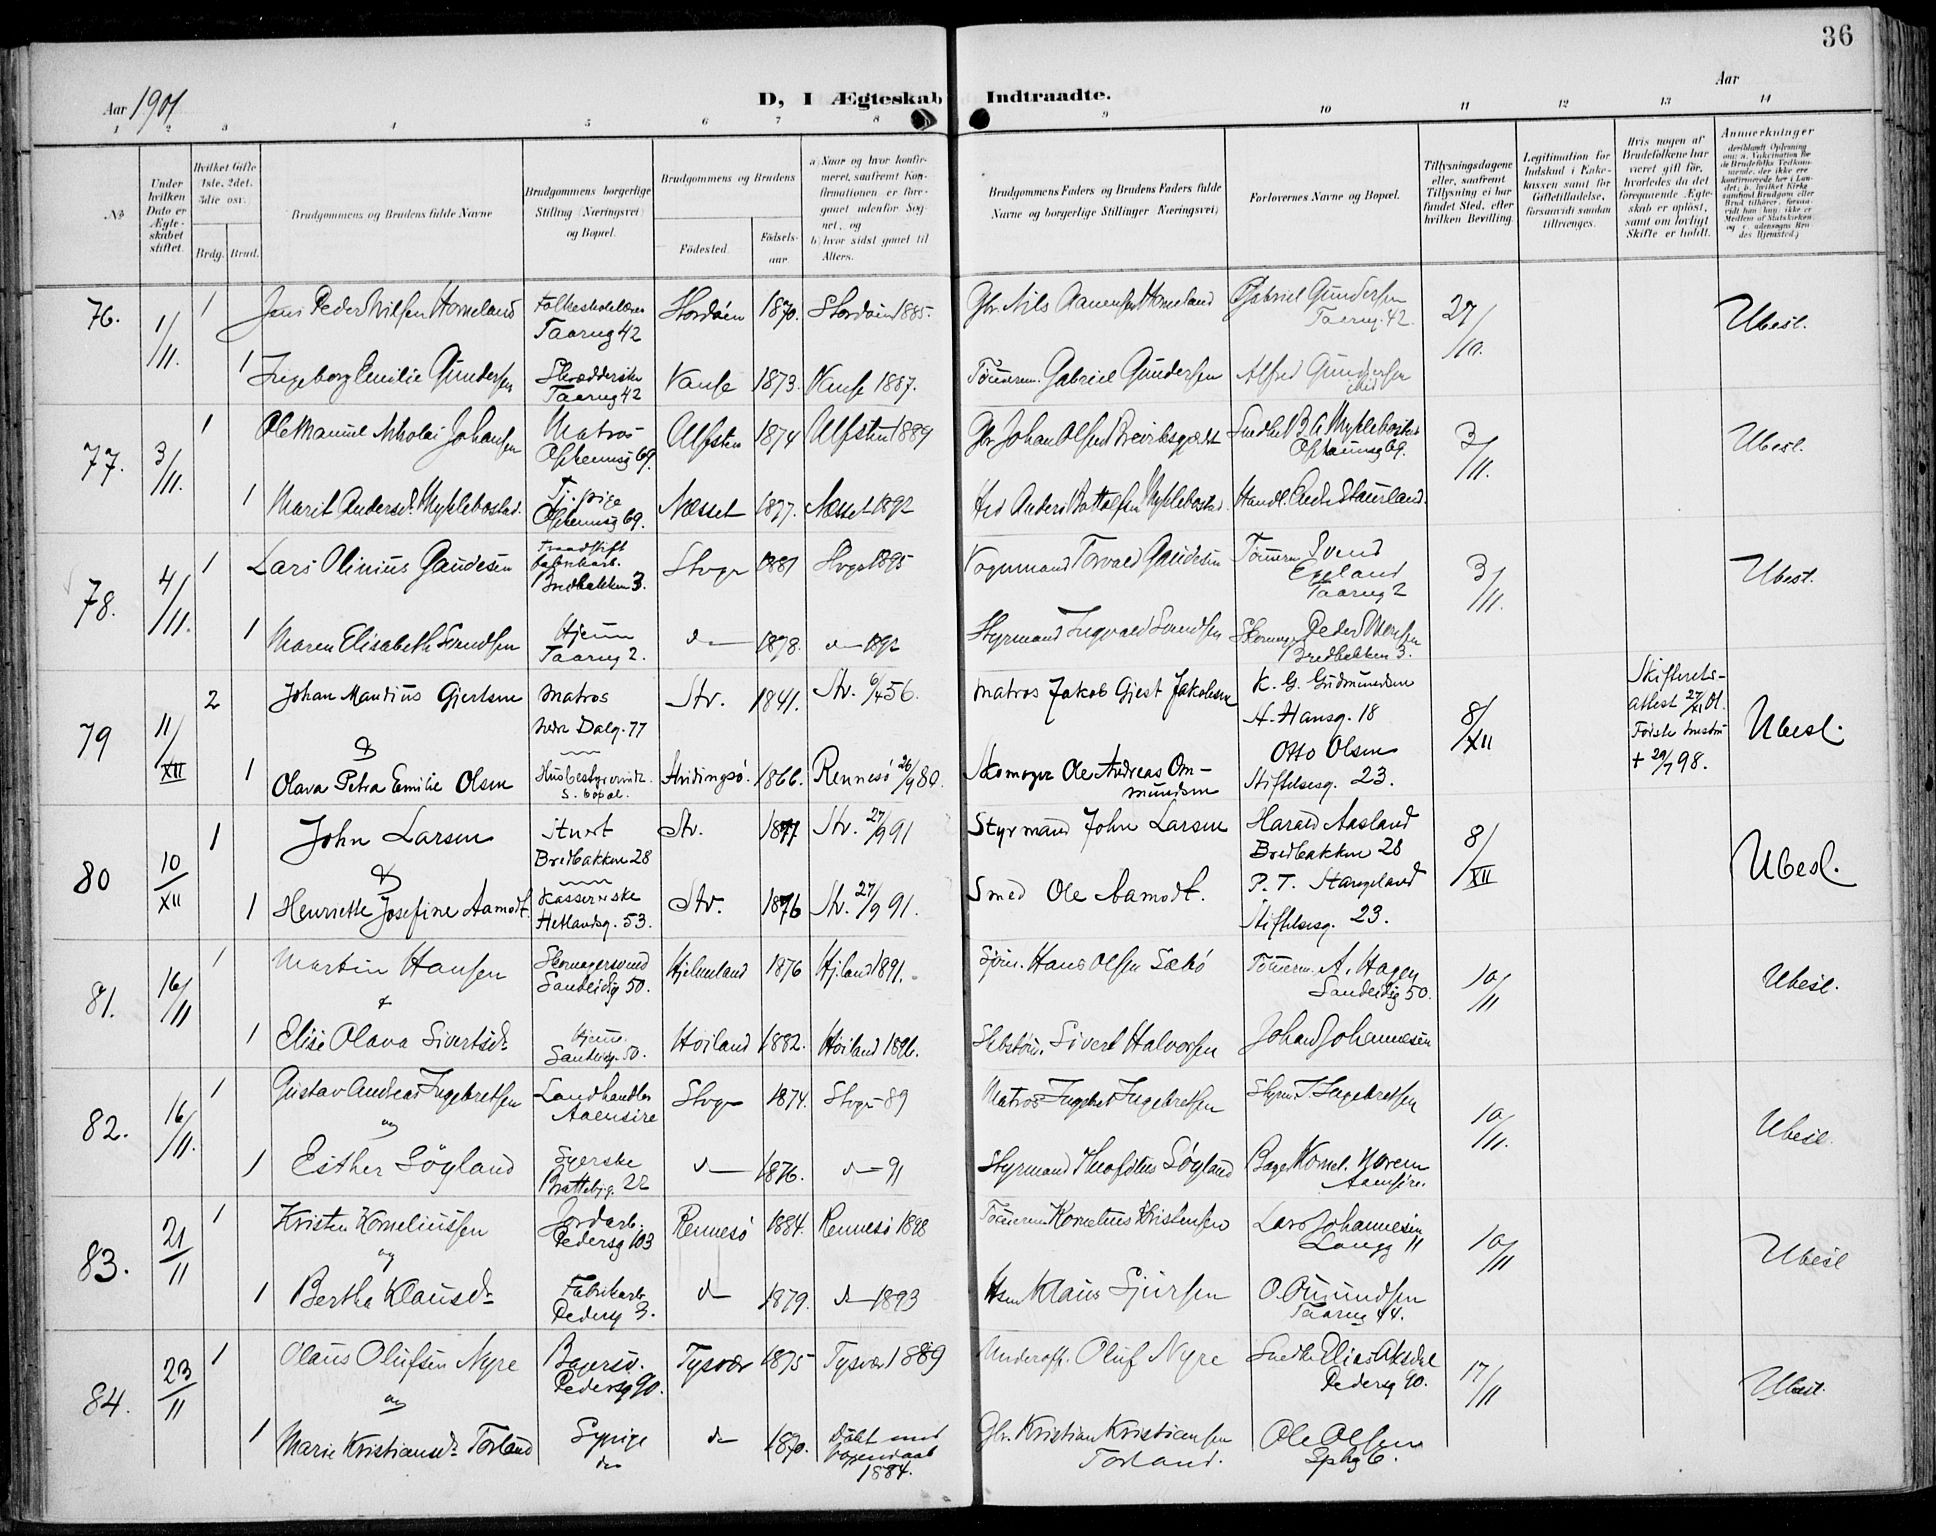 36
Aar 1901
D, I Ægteskab Indtraadte.
Aar
1 2 3 4 5 6 7 8 9 10 11 12 13 14
No
Under hvilken Dato er Ægteskabet stiftet.
Hvilket Gifte 1ste, 2det, 3die osv.
Brdg. Brud.
Brudgommens og Brudens fulde Navne
Brudgommens borgerlige Stilling (Næringsvei) og Bopæl.
Brudgommens og Brudens
Fødested.
Fødselsaar
a) Naar og hvor konfirmeret, saafremt Konfirmationen er foregaaet udenfor Sognet, og
b) hvor sidst gaaet til Alters.
Brudgommens Faders og Brudens Faders fulde Navne og borgerlige Stillinger (Næringsvei)
Forlovernes Navne og Bopæl.
Tillysningsdagene eller, saafremt Tillysning ei har fundet Sted, efter hvilken Bevilling.
Legitimation for Indskud i Enkekassen samt for Giftetilladelse, forsaavidt saadan tiltrænges.
Hvis nogen af Brudefolkene har været gift før, hvorledes da det foregaaende Ægteskab er opløst, samt om lovligt Skifte er holdt.
Anmærkninger
76. 1/11. 1 Jens Peder Nilsen Homeland Folkeskolelærer Taarng 42 Stordøen 1870. Stordøen 1885. Gbr. Nils Aanensen Homeland Gabriel Gundersen Taarng. 42 27/10. Ubesl.
1 Ingeborg Emilie Gundersen Skrædderske Taarng 42 Vanse 1873. Vanse 1887. Tømerm. Gabriel Gundersen Alfred Gundersen ibid
77. 3/11. 1 Ole Manuel Nikolai Johansen Matros 69. Ulfsten 1874 Ulfsten 1889 Gbr. Johan Olsen Snedker Myklebostad 69. 3/11. Ubesl.
1 Marit Andersd. Myklebostad. Tj.pige 69. Næsset 1877. Næsset 1892 Anders Myklebostad. Handl. Staurland.
78. 4/11. 1 Lars Olinius Gaudesen fabrikarb. Bredbakken 3. Stvgr 1881 Stvgr 1895 Vognmand Torvald Gaudesen Tømerm Svend Egeland Taarng 2 3/11. Ubesl.
1 Maren Elisabeth Svendsen Hjem Taarng 2. d— 1878. d— 1892 Styrmand Ingvald Svendsen Skomag Peder Monsen Bredbakken 3.
79 11/XII 2 Johan Mandius Gjertsen Matros nedre Dalg. 77 Stv. 1841. Stv. 6/4 56. Matros Jakob Gjest Jakobsen K. G. Gudmundsen A. Hansg. 18 8/XII Skifterets-attest 27/XI 01. Første hustru + 29/7 98. Ubesl.
&
1 Olava Petra Emilie Olsen Husbestyrerinde s. bopæl. Hvidingsø. 1866. Rennesø 26/9 80. Skomager Ole Andreas Ommundsen Otto Olsen Stiftelsesg. 23.
80 10/XII 1 John Larsen Stuert Bredbakken 28 Stv. 1877 Stv. 27/9 91 Styrmand John Larsen Harald Aasland Bredbakken 28 8/XII Ubesl.
&
1 Henriette Josefine Aamodt. Kassererske Hetlandsg. 53. Stv. 1876 Stv. 27/9 91. Smed Ole Aamodt. P. T. Stangeland Stiftelsesg. 23.
81. 16/11 1 Martin Hansen Skomagersvend Sandeidig 50. Hjelmeland 1876 Hjland 1891. Hans Olsen Sæbø Tømerm. A. Hagen Sandeidig 50. 10/11 Ubesl.
&
1 Elise Olava Sivertsd. Hjem. Sandeidg. 50. Høiland 1882. Høiland 1896. Sivert Halvorsen Johan Johannesen
82. 16/11. 1 Gustav Andreas Ingebretsen Landhandler Aaensire Stvgr 1874. Stvgr 89 Matros Ingebret Ingebretsen Styrm I. Ingebretsen 10/11. Ubesl.
og
1 Esther Søyland Syerske Brattebjg. 22 d— 1876. d— 91 Styrmand Theofilus Søyland Bager Kornel. Norem Aaensire.
83. 21/11 1 Kristen Korneliussen Jordarb. Pedersg 103 Rennesø 1884. Rennesø 1898 Tømerm Kornelius Kristensen Lars Johannesen Langg 11 10/11 Ubesl
og
1 Bertha Klausd. Fabrikarb Pedersg 3. d— 1879. d— 1893 Klaus Sjursen O. Omundsen Taarng 44.
84. 23/11 1 Olaus Olufsen Nyre Bagersv. Pedersg 90. Tysvær 1875 Tysvær 1889 Underoff. Oluf Nyre Snedker Elias Aksdal Pedersg 90. 17/11 Ubesl.
og
1 Marie Kristiansd. Torland Sypige do d— 1870. Døbt med 1884. Gbr. Kristian Kristiansen Torland. Ole Olsen 6.